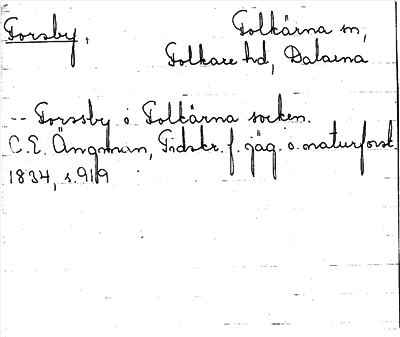 Forsby, Folkärna sn,
Folkare hd, Dalarna
-- Forssby i Folkärna socken.
C.E. Ängman, Tidskr. f. jäg. o. naturforsk.
1834, s. 919